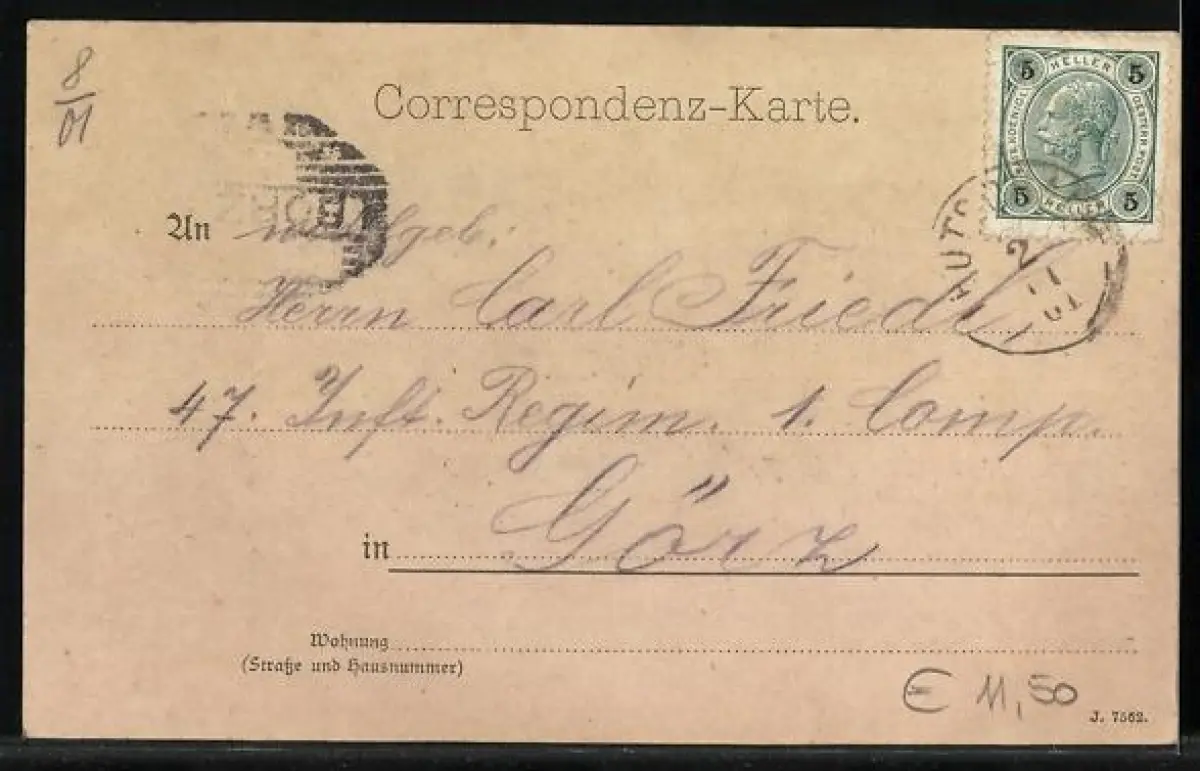 8
01
Correspondenz-Karte.
5 HELLER 5
OESTERR. POST
5 HELLER 5
GOERZ
HUT
2
11
01
An Wohlgeb:
Herrn Carl Friedl
47. Inft. Regim. 1. Comp.
in Görz
Wohnung
(Straße und Hausnummer)
€ 11,50
J. 7562.